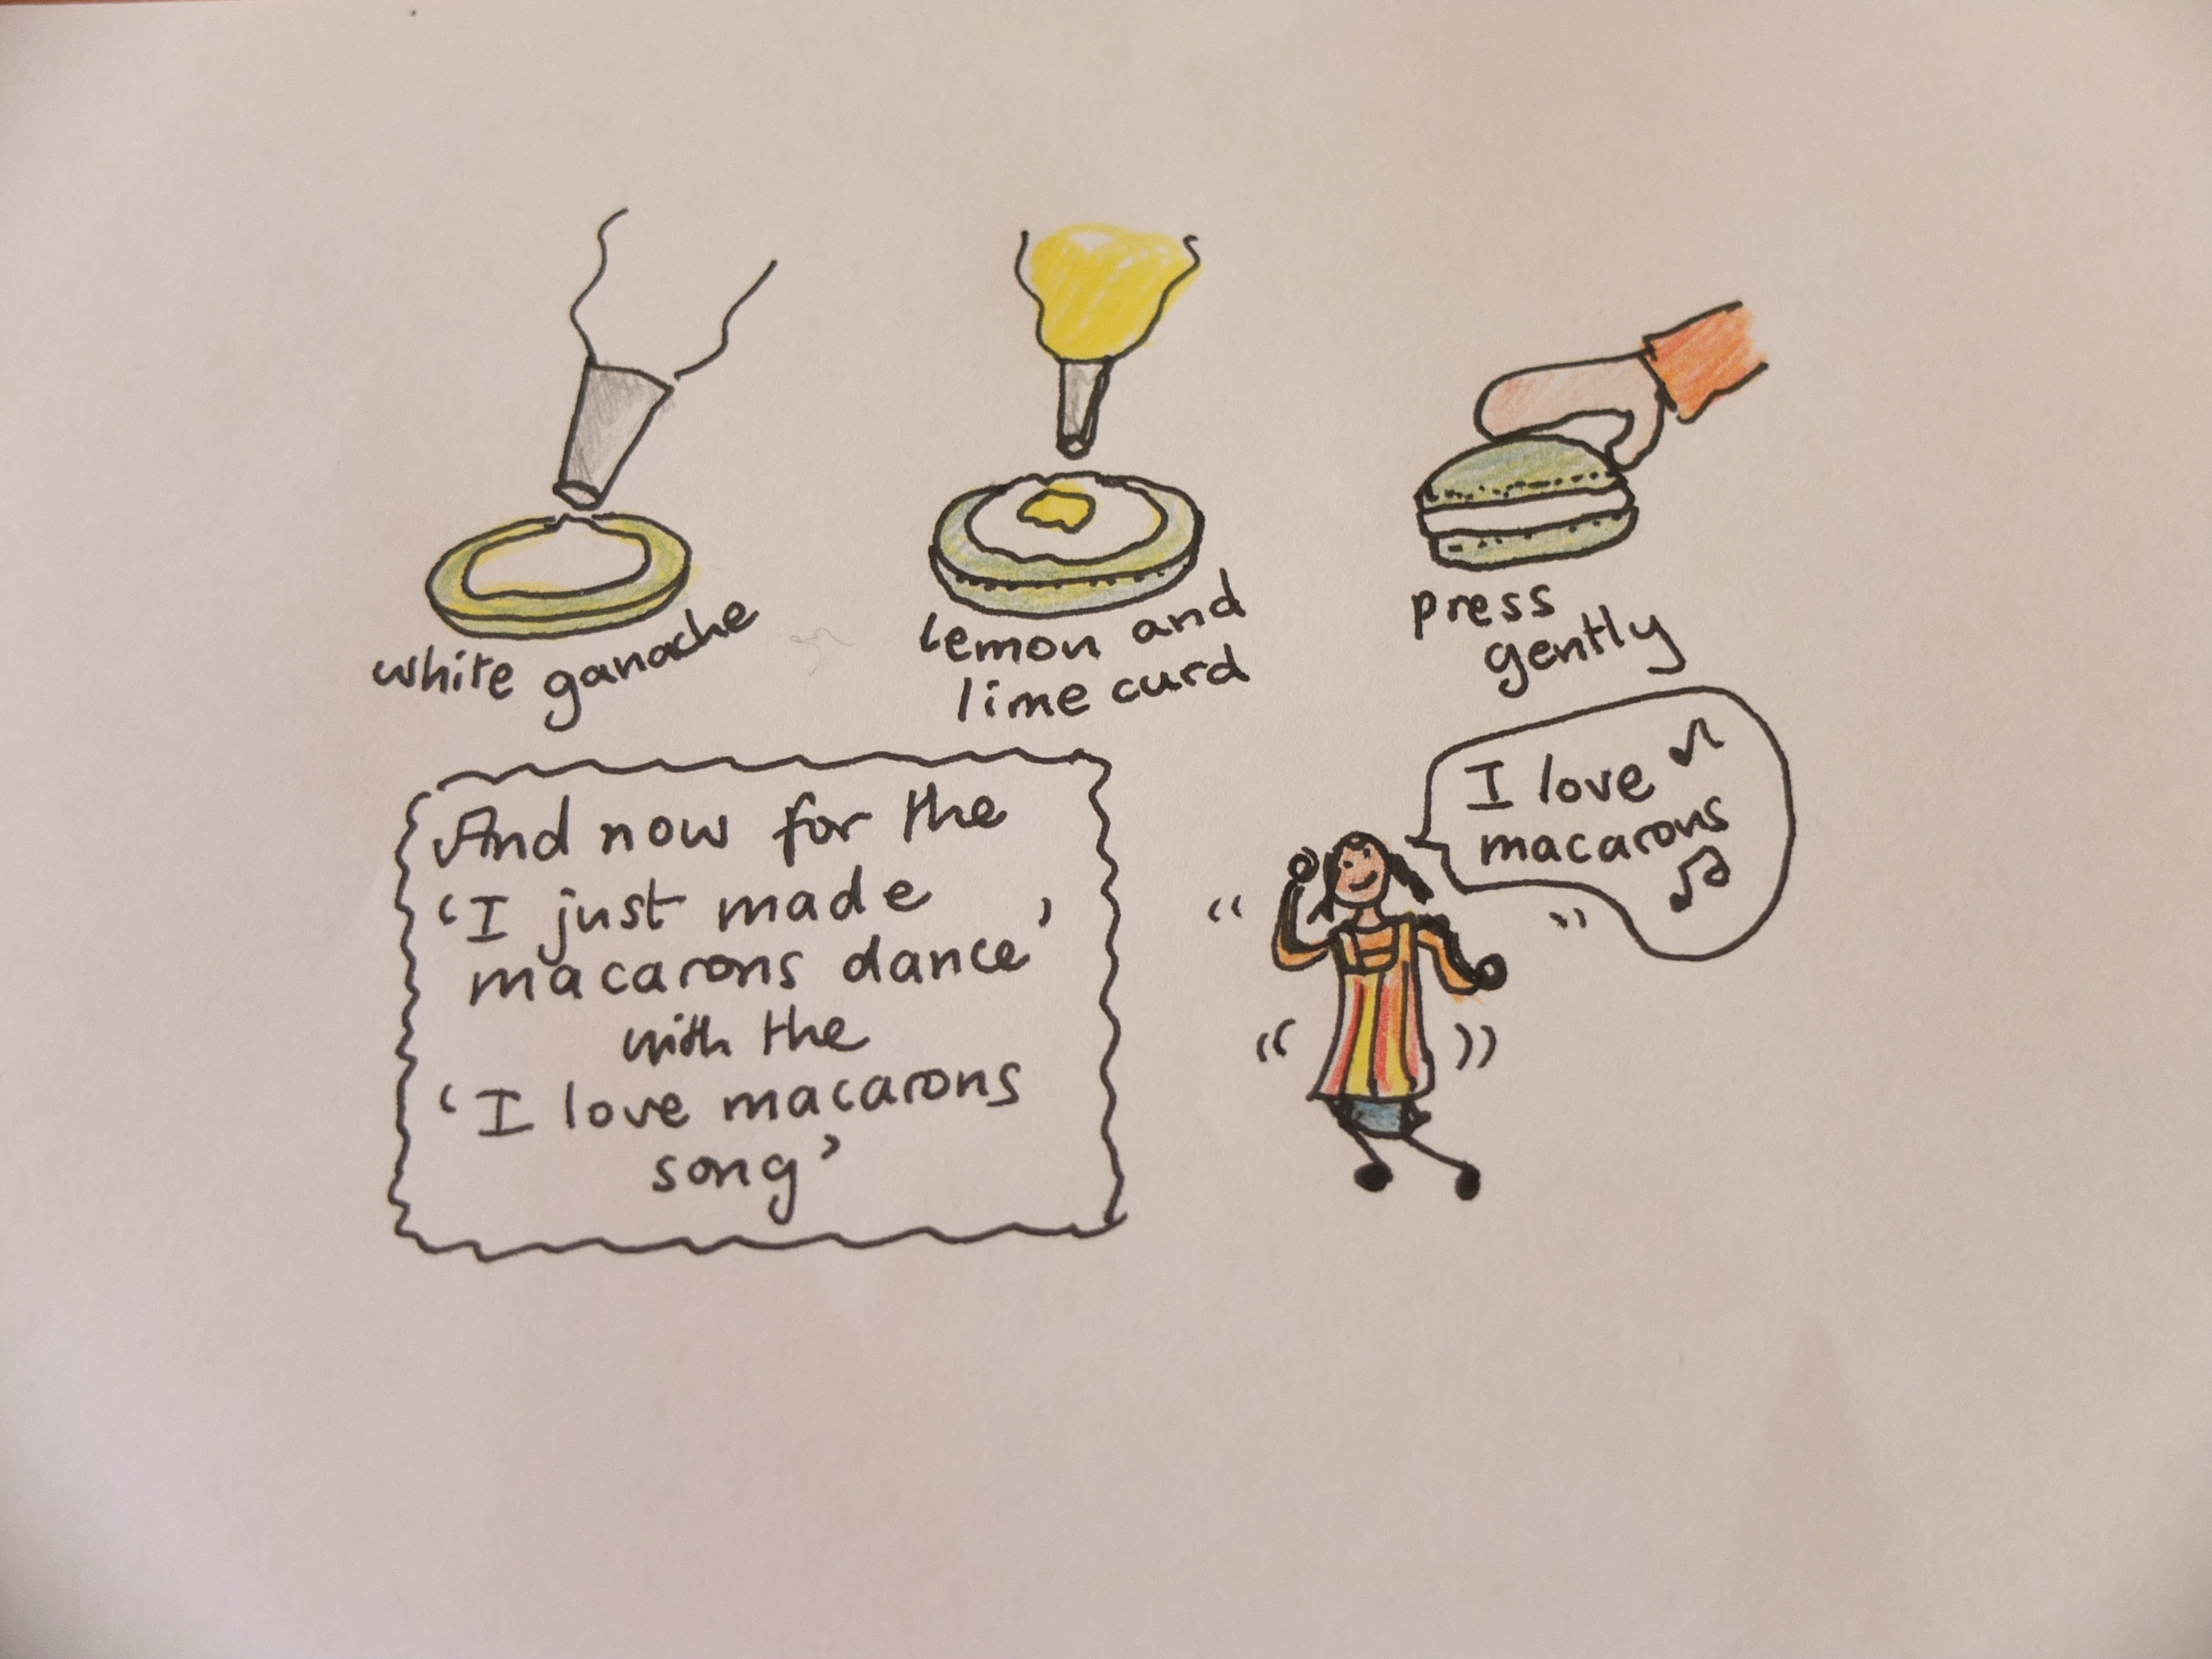 white ganache
lemon and
lime curd
press
gently
I love
macarons
And now for the
'I just made
macarons dance'
with the
'I love macarons
song'